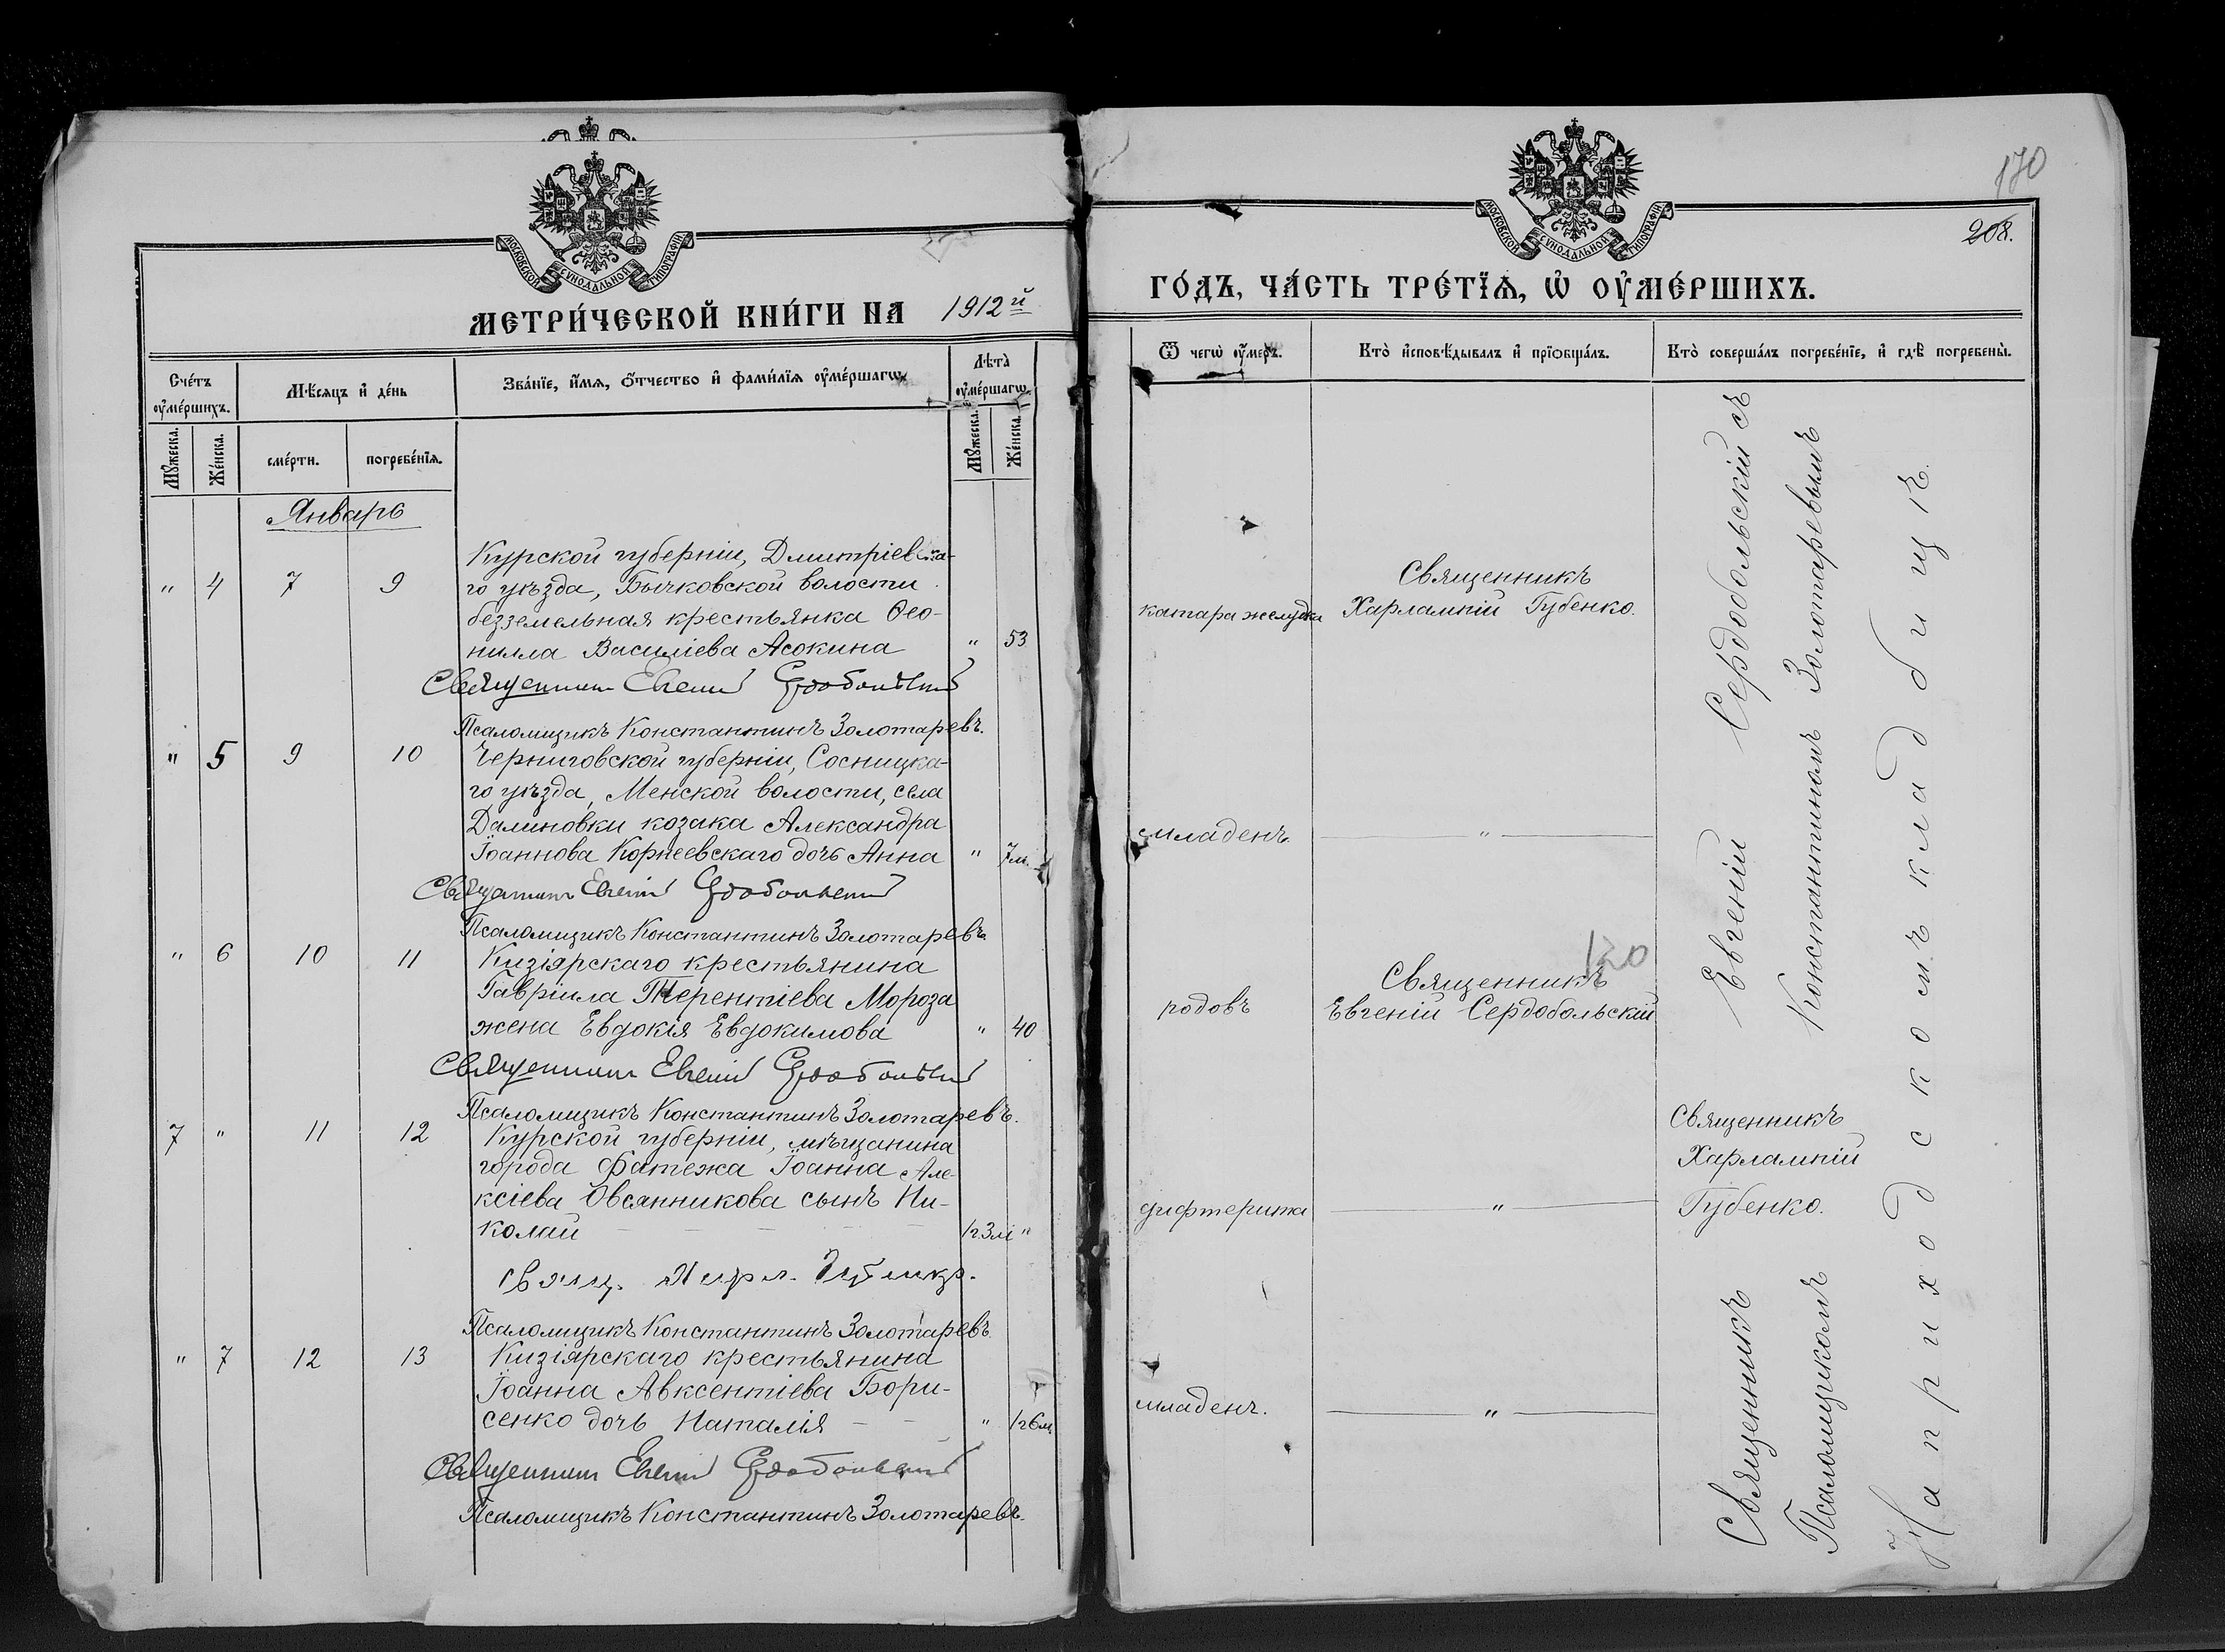 МОСКОВСКОЙ СѴНОДАЛЬНОЙ ТИПОГРАФІИ
МЕТРИ́ЧЕСКОЙ КНИ́ГИ НА 1912 й
Сче́тъ оу҆ме́ршихъ.
Мѣ́сяцъ и҆ де́нь
Зва́нїе, и҆́мя, ѻ҆́тчество и҆ фами́лїя оу҆ме́ршагѡ
Лѣта̀ оу҆ме́ршагѡ
Мꙋ́жеска.
Же́нска.
сме́рти.
погребе́нїя.
Мꙋ́жеска.
Же́нска.
Январь
Курской губерніи, Дмитріевска-
" 4 7 9 го уѣзда, Бычковской волости
безземельная крестьянка Ѳео-
нилла Василіева Асокина " 53
Священникъ Евгеній Сердобольскій
Псаломщикъ Константинъ Золотаревъ.
" 5 9 10 Черниговской губерніи, Сосницка-
го уѣзда, Менской волости, села
Далиновки козака Александра
Іоаннова Корнеевскаго дочь Анна " 7м.
Священникъ Евгеній Сердобольскій
Псаломщикъ Константинъ Золотаревъ.
" 6 10 11 Кизіярскаго крестьянина
Гавріила Терентіева Мороза
жена Евдокія Евдокимова " 40
Священникъ Евгеній Сердобольскій
Псаломщикъ Константинъ Золотаревъ.
7 " 11 12 Курской губерніи, мѣщанина
города Фатежа Іоанна Але-
ксіева Овсянникова сынъ Ни-
колай 1г3м "
Свящ. Харл. Губенко.
Псаломщикъ Константинъ Золотаревъ.
" 7 12 13 Кизіярскаго крестьянина
Іоанна Авксентіева Бори-
сенко дочь Наталія " 1г6м
Священникъ Евгеній Сердобольскій
Псаломщикъ Константинъ Золотаревъ.
170
208.
МОСКОВСКОЙ СѴНОДАЛЬНОЙ ТИПОГРАФІИ
ГО́ДЪ, ЧА́СТЬ ТРЕ́ТЇѦ, Ѡ҆ ОУ҆МЕ́РШИХЪ.
Ѿ чегѡ̀ оу҆́меръ.
Кто̀ и҆сповѣ́дывалъ и҆ прїѻбща́лъ.
Кто̀ соверша́лъ погребе́нїе, и҆ гдѣ̀ погребены̀.
катара желудка
Священникъ
Харлампій Губенко.
младенч.
"
родовъ
120
Священникъ
Евгеній Сердобольскій
дифтерита
"
Священникъ
Харлампій
Губенко.
младенч.
"
Священникъ Евгеній Сердобольскій съ
Псаломщикомъ Константиномъ Золотаревымъ
На приходскомъ кладбищѣ.